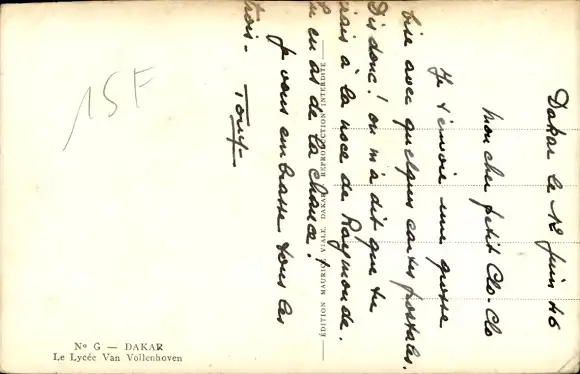 Dakar le 12 Juin 46
Mon cher petit Clo-Clo
Je t'envoie une grosse
bise avec quelques cartes postales.
Dis donc! on m'a dit que tu
irais à la noce de Raymonde.
Tu en as de la chance!
Je vous embrasse tous les
trois. Tony
15F
ÉDITION MAURICE VIALE, DAKAR REPRODUCTION INTERDITE
Nº G — DAKAR
Le Lycée Van Vollenhoven